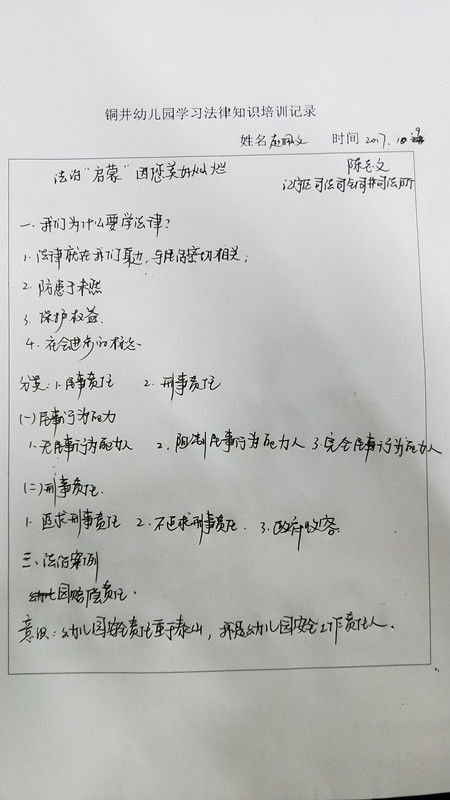 铜井幼儿园学习法律知识培训记录
姓名 时间 2017.10.9
法治“启蒙”因您美好灿烂
陈志文
江宁区司法局铜井司法所
一、我们为什么要学法律？
1. 法律就在我们身边，与生活密切相关；
2. 防患于未然
3. 保护权益.
4. 社会进步的标志.
分类：1. 民事责任 2. 刑事责任
(一)民事行为能力
1. 无民事行为能力人 2. 限制民事行为能力人 3. 完全民事行为能力人
(二)刑事责任.
1. 追求刑事责任 2. 不追求刑事责任. 3. 政府收容.
三、法治案例
幼儿园赔偿责任.
意识：幼儿园安全责任重于泰山，我是幼儿园安全工作责任人。